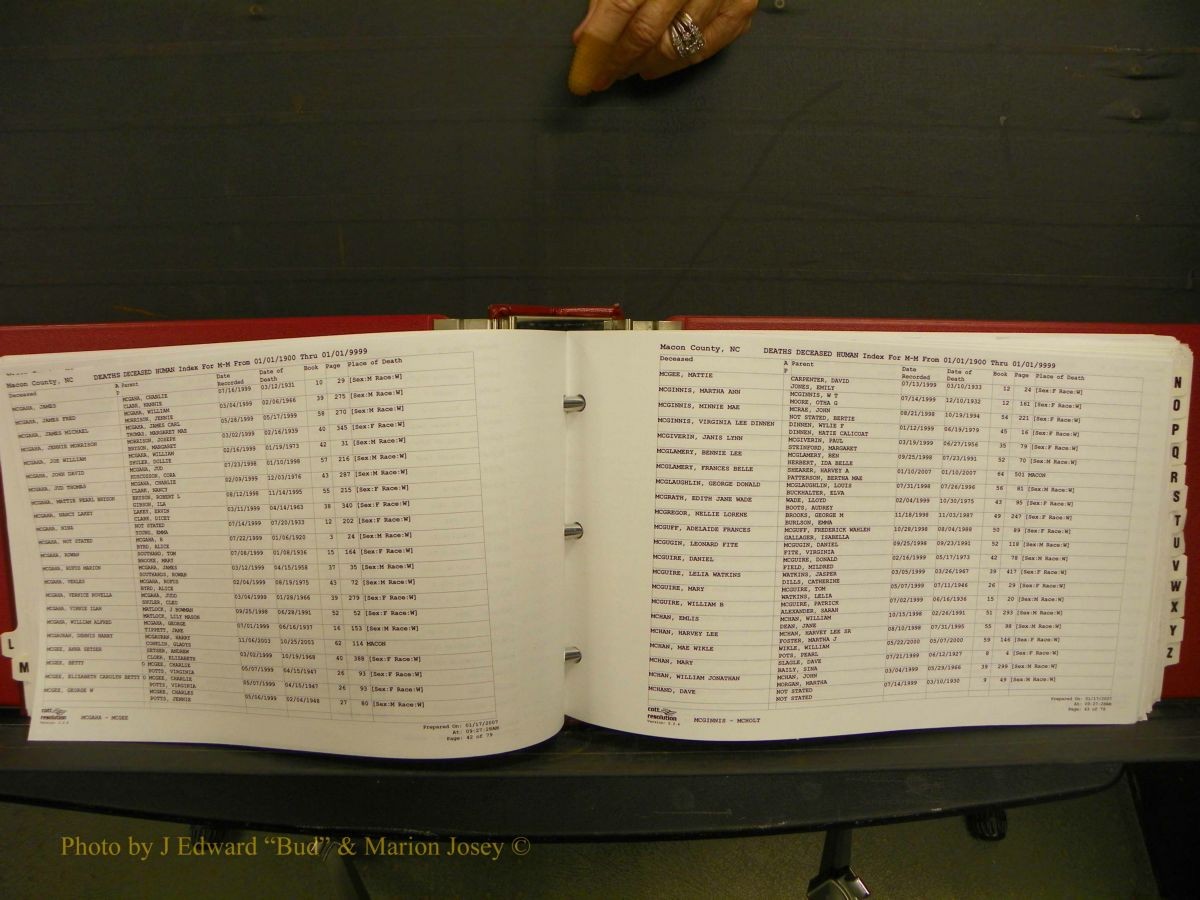 Macon County, NC DEATHS DECEASED HUMAN Index For M-M From 01/01/1900 Thru 01/01/9999
Deceased A Parent Date Recorded Date of Death Book Page Place of Death
P
MCGAHA, JAMES MCGAHA, CHARLIE 07/16/1999 03/12/1931 10 29 [Sex:M Race:W]
MCGAHA, JAMES FRED MCGAHA, WILLIAM 03/04/1999 02/06/1966 39 275 [Sex:M Race:W]
MORRISON, JENNIE
MCGAHA, JAMES MICHAEL MCGAHA, JAMES CARL 05/28/1999 05/17/1999 58 270 [Sex:M Race:W]
THOMAS, MARGARET MAE
MCGAHA, JENNIE MORRISON MORRISON, JOSEPH 03/02/1999 02/16/1939 40 345 [Sex:F Race:W]
BRYSON, MARGARET
MCGAHA, JOE WILLIAM MCGAHA, WILLIAM 02/16/1999 01/19/1973 42 31 [Sex:M Race:W]
SHULER, DOLLIE
MCGAHA, JOHN DAVID MCGAHA, JUD 07/23/1998 01/10/1998 57 216 [Sex:M Race:W]
MCGAHA, JUD THOMAS MCGAHA, CHARLIE 02/09/1999 12/03/1976 43 287 [Sex:M Race:W]
CLARK, NANCY
MCGAHA, MATTIE PEARL BRYSON BRYSON, ROBERT L 08/12/1998 11/14/1995 55 215 [Sex:F Race:W]
GIBSON, ILA
MCGAHA, NANCY LAKEY LAKEY, ERVIN 03/11/1999 04/14/1963 38 340 [Sex:F Race:W]
CLARK, DICEY
MCGAHA, NINA NOT STATED 07/14/1999 07/20/1933 12 202 [Sex:F Race:W]
YOUNG, EMMA
MCGAHA, NOT STATED MCGAHA, R 07/22/1999 01/06/1920 3 24 [Sex:M Race:W]
BYRD, ALICE
MCGAHA, ROWAN SOUTHARD, TOM 07/08/1999 01/08/1936 15 164 [Sex:F Race:W]
BROOKE, MARY
MCGAHA, RUFUS MARION MCGAHA, JAMES 03/12/1999 04/15/1958 37 35 [Sex:M Race:W]
SOUTHARDS, ROWAN
MCGAHA, VEALES MCGAHA, RUFUS 02/04/1999 08/19/1975 43 72 [Sex:M Race:W]
BYRD, ALICE
MCGAHA, VERNICE NOVELLA MCGAHA, JUDD 03/04/1999 01/28/1966 39 279 [Sex:F Race:W]
SHULER, CLEO
MATLOCK, J BOWMAN 09/25/1998 06/28/1991 52 52 [Sex:F Race:W]
MATLOCK, LILY MASON
MCGAHA, WILLIAM ALFRED MCGAHA, GEORGE 07/01/1999 06/16/1937 16 153 [Sex:M Race:W]
TIPPETT, JANE
MCGAUHAN, DENNIS HARRY MCGAUHAN, HARRY 11/06/2003 10/25/2003 62 114 MACON
CONKLIN, GLADYS
MCGEE, ANNA SETSER SETSER, ANDREW 03/02/1999 10/19/1968 40 388 [Sex:F Race:W]
CLOER, ELIZABETH
MCGEE, BETTY O MCGEE, CHARLIE 05/07/1999 04/15/1947 26 93 [Sex:F Race:W]
POTTS, VIRGINIA
MCGEE, ELIZABETH CAROLYN BETTY O MCGEE, CHARLIE 05/07/1999 04/15/1947 26 93 [Sex:F Race:W]
POTTS, VIRGINIA
MCGEE, GEORGE W MCGEE, CHARLES 05/06/1999 02/04/1948 27 80 [Sex:M Race:W]
POTTS, JENNIE
cott
resolution
MCGAHA - MCGEE
Prepared On: 01/17/2007
At: 09:27:28AM
Page: 42 of 79
L
M
Macon County, NC DEATHS DECEASED HUMAN Index For M-M From 01/01/1900 Thru 01/01/9999
Deceased A Parent Date Recorded Date of Death Book Page Place of Death
P
MCGEE, MATTIE CARPENTER, DAVID 07/13/1999 03/10/1933 12 24 [Sex:F Race:W]
JONES, EMILY
MCGINNIS, MARTHA ANN MCGINNIS, W T 07/14/1999 12/10/1932 12 181 [Sex:F Race:W]
MOORE, OTHA G
MCGINNIS, MINNIE MAE MCRAE, JOHN 08/21/1998 10/19/1994 54 221 [Sex:F Race:W]
NOT STATED, BERTIE
MCGINNIS, VIRGINIA LEE DINNEN DINNEN, WYLIE F 01/12/1999 06/19/1979 45 16 [Sex:F Race:W]
DINNEN, HATIE CALICOAT
MCGIVERIN, JANIS LYNN MCGIVERIN, PAUL 03/19/1999 06/27/1956 35 79 [Sex:F Race:W]
STEINFORD, MARGARET
MCGLAMERY, BENNIE LEE MCGLAMERY, BEN 09/25/1998 07/23/1991 52 70 [Sex:M Race:W]
HERBERT, IDA BELLE
MCGLAMERY, FRANCES BELLE SHEARER, HARVEY A 01/10/2007 01/10/2007 64 501 MACON
PATTERSON, BERTHA MAE
MCGLAUGHLIN, GEORGE DONALD MCGLAUGHLIN, LOUIS 07/31/1998 07/26/1996 56 81 [Sex:M Race:W]
BUCKHALTER, ELVA
MCGRATH, EDITH JANE WADE WADE, LLOYD 02/04/1999 10/30/1975 43 95 [Sex:F Race:W]
BOOTS, AUDREY
MCGREGOR, NELLIE LORENE BROOKS, GEORGE M 11/18/1998 11/03/1987 49 247 [Sex:F Race:W]
BURLSON, EMMA
MCGUFF, ADELAIDE FRANCES MCGUFF, FREDERICK WAHLEN 10/28/1998 08/04/1988 50 89 [Sex:F Race:W]
GALLAGER, ISABELLA
MCGUGIN, LEONARD FITE MCGUGIN, DANIEL 09/25/1998 09/23/1991 52 118 [Sex:M Race:W]
FITE, VIRGINIA
MCGUIRE, DANIEL MCGUIRE, DONALD 02/16/1999 05/17/1973 42 78 [Sex:M Race:W]
FIELD, MILDRED
MCGUIRE, LELIA WATKINS WATKINS, JASPER 03/05/1999 03/26/1967 39 417 [Sex:F Race:W]
DILLS, CATHERINE
MCGUIRE, MARY MCGUIRE, TOM 05/07/1999 07/11/1946 26 29 [Sex:F Race:W]
WATKINS, LELIA
MCGUIRE, WILLIAM B MCGUIRE, PATRICK 07/02/1999 06/16/1936 15 20 [Sex:M Race:W]
ALEXANDER, SARAH
MCHAN, EMLIS MCHAN, WILLIAM 10/15/1998 02/26/1991 51 293 [Sex:M Race:W]
DEAN, JANE
MCHAN, HARVEY LEE MCHAN, HARVEY LEE SR 08/10/1998 07/31/1995 55 98 [Sex:M Race:W]
FOSTER, MARTHA J
MCHAN, MAE WIKLE WIKLE, WILLIAM 05/22/2000 05/07/2000 59 146 [Sex:F Race:W]
POTS, PEARL
MCHAN, MARY SLAGLE, DAVE 07/21/1999 06/12/1927 8 4 [Sex:F Race:W]
BAILY, SINA
MCHAN, WILLIAM JONATHAN MCHAN, JOHN 03/04/1999 03/29/1966 39 299 [Sex:M Race:W]
MORGAN, MARTHA
MCHAND, DAVE NOT STATED 07/14/1999 03/10/1930 9 49 [Sex:M Race:W]
NOT STATED
cott
resolution
MCGINNIS - MCHOLT
Prepared On: 01/17/2007
At: 09:27:28AM
Page: 43 of 79
N
O
P
Q
R
S
T
U
V
W
X
Y
Z
Photo by J Edward “Bud” & Marion Josey ©